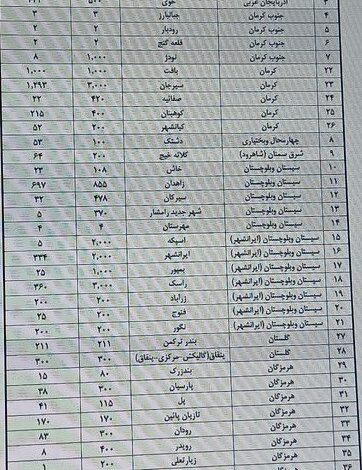 ۳ آذربایجان غربی خوی ۵۰۰
۴ جنوب کرمان جبالبارز ۳ ۳
۵ جنوب کرمان رودبار ۲ ۲
۶ جنوب کرمان قلعه گنج ۲ ۲
۷ جنوب کرمان نودژ ۱,۰۰۰ ۸
۲۲ کرمان بافت ۱,۰۰۰ ۱,۰۰۰
۲۳ کرمان سیرجان ۳,۰۰۰ ۱,۲۹۳
۲۴ کرمان صفائیه ۴۲۰ ۲۲
۲۵ کرمان کوهبنان ۴۰۰ ۲۱۵
۲۶ کرمان کیانشهر ۲۰۰ ۵۲
۸ چهارمحال وبختیاری دشتک ۱۰۰ ۵۳
۹ شرق سمنان (شاهرود) کلاته خیج ۲۰۰ ۶۴
۱۰ سیستان وبلوچستان خاش ۱۰۸ ۲۳
۱۱ سیستان وبلوچستان زاهدان ۸۵۵ ۶۹۷
۱۲ سیستان وبلوچستان سیرکان ۴۷۸ ۳۲
۱۳ سیستان وبلوچستان شهر جدید رامشار ۳۷۰ ۵
۱۴ سیستان وبلوچستان مهرستان ۴ ۴
۱۵ سیستان وبلوچستان (ایرانشهر) اسپکه ۲,۰۰۰ ۵
۱۶ سیستان وبلوچستان (ایرانشهر) ایرانشهر ۲,۰۰۰ ۳۳۴
۱۷ سیستان وبلوچستان (ایرانشهر) بمپور ۱,۰۰۰ ۲۵
۱۸ سیستان وبلوچستان (ایرانشهر) راسک ۳,۰۰۰ ۳۶۰
۱۹ سیستان وبلوچستان (ایرانشهر) زرآباد ۲۰۰ ۲۰۰
۲۰ سیستان وبلوچستان (ایرانشهر) فنوج ۲۰۰ ۲۵
۲۱ سیستان وبلوچستان (ایرانشهر) نگور ۲۰۰ ۲۰۰
۲۷ گلستان بندر ترکمن ۲۱۱ ۲۱۱
۲۸ گلستان ینقاق(گالیکش-مرکزی-ینقاق) ۳۰۰ ۳۰۰
۲۹ هرمزگان بندزرک ۸۰ ۱۵
۳۰ هرمزگان پارسیان ۳۰۰ ۳۸
۳۱ هرمزگان پل ۱۱۵ ۴۱
۳۲ هرمزگان تازیان پائین ۱۷۰ ۱۷۰
۳۳ هرمزگان رودان ۳۰۰ ۸۳
۳۴ هرمزگان رویدر ۴۰۰ ۸
۳۵ هرمزگان زیارتعلی ۲۰۰ ۱